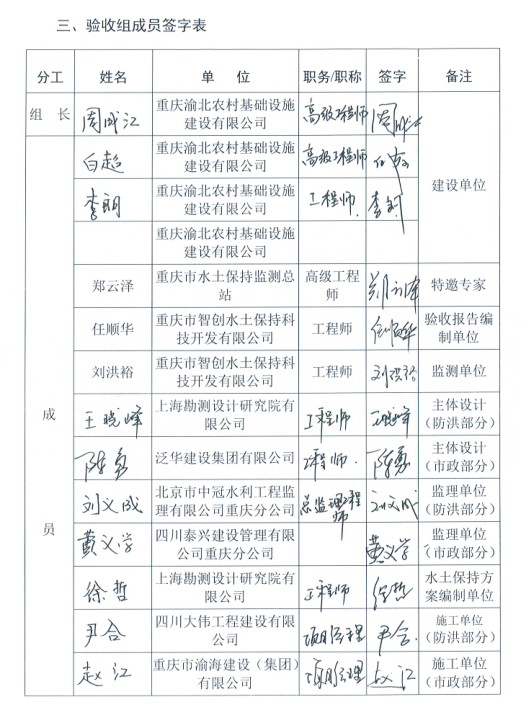 三、验收组成员签字表
分工 姓名 单 位 职务/职称 签字 备注
组 长 周成江 重庆渝北农村基础设施
建设有限公司 高级工程师 周成江
白超 重庆渝北农村基础设施
建设有限公司 高级工程师 白超
李朗 重庆渝北农村基础设施
建设有限公司 工程师 李朗
建设单位
重庆渝北农村基础设施
建设有限公司
郑云泽 重庆市水土保持监测总
站 高级工程
师 特邀专家
任顺华 重庆市智创水土保持科
技开发有限公司 工程师 任顺华 验收报告编
制单位
刘洪裕 重庆市智创水土保持科
技开发有限公司 工程师 刘洪裕 监测单位
成
员
王晓峰 上海勘测设计研究院有
限公司 工程师 王晓峰 主体设计
(防洪部分)
陈勇 泛华建设集团有限公司 工程师 陈勇 主体设计
(市政部分)
刘义成 北京市中冠水利工程监
理有限公司重庆分公司 总监理工程
师 刘义成 监理单位
(防洪部分)
黄义学 四川泰兴建设管理有限
公司重庆分公司 黄义学 监理单位
(市政部分)
徐哲 上海勘测设计研究院有
限公司 工程师 徐哲 水土保持方
案编制单位
尹合 四川大伟工程建设有限
公司 项目经理 尹合 施工单位
(防洪部分)
赵江 重庆市渝海建设(集团)
有限公司 项目经理 赵江 施工单位
(市政部分)